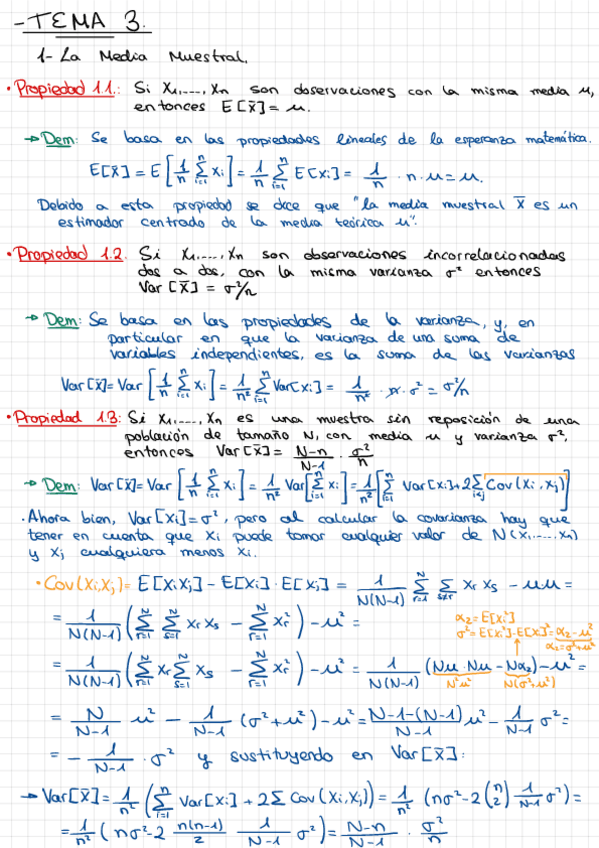 - TEMA 3.
1- La Media Muestral.
• Propiedad 1.1.: Si X₁,...., Xₙ son observaciones con la misma media μ,
entonces E[x̄] = μ.
→ Dem: Se basa en las propiedades lineales de la esperanza matemática.
E[x̄] = E[1/n Σᵢ₌₁ⁿ xᵢ] = 1/n Σᵢ₌₁ⁿ E[xᵢ] = 1/n · n · μ = μ.
Debido a esta propiedad se dice que "la media muestral x̄ es un
estimador centrado de la media teórica μ".
• Propiedad 1.2. Si X₁,...., Xₙ son observaciones incorrelacionadas
dos a dos, con la misma varianza σ² entonces
Var[x̄] = σ²/n
→ Dem: Se basa en las propiedades de la varianza, y, en
particular en que la varianza de una suma de
variables independientes, es la suma de las varianzas
Var[x̄] = Var[1/n Σᵢ₌₁ⁿ xᵢ] = 1/n² Σᵢ₌₁ⁿ Var[xᵢ] = 1/n² · n · σ² = σ²/n
• Propiedad 1.3: Si X₁,...., Xₙ es una muestra sin reposición de una
población de tamaño N, con media μ y varianza σ²,
entonces Var[x̄] = N-n/N-1 · σ²/n
→ Dem: Var[x̄] = Var[1/n Σᵢ₌₁ⁿ xᵢ] = 1/n² Var[Σᵢ₌₁ⁿ xᵢ] = 1/n² [Σᵢ₌₁ⁿ Var[xᵢ] + 2Σᵢ<ⱼ Cov(xᵢ, xⱼ)]
. Ahora bien, Var[xᵢ] = σ², pero al calcular la covarianza hay que
tener en cuenta que xᵢ puede tomar cualquier valor de N(x₁,....,xₙ)
y xⱼ cualquiera menos xᵢ.
• Cov(xᵢ,xⱼ) = E[xᵢxⱼ] - E[xᵢ] · E[xⱼ] = 1/N(N-1) Σᵣ₌₁ᴺ Σₛ≠ᵣ xᵣ xₛ - μμ =
= 1/N(N-1) (Σᵣ₌₁ᴺ Σₛ₌₁ᴺ xᵣ xₛ - Σᵣ₌₁ᴺ xᵣ²) - μ² =
α₂ = E[xᵢ²]
σ² = E[xᵢ²]-E[xᵢ]² = α₂ - μ²
α₂ = σ² + μ²
= 1/N(N-1) (Σᵣ₌₁ᴺ xᵣ Σₛ₌₁ᴺ xₛ - Σᵣ₌₁ᴺ xᵣ²) - μ² = 1/N(N-1) (Nμ · Nμ - Nα₂) - μ² =
N²μ² N(σ²+μ²)
= N/N-1 μ² - 1/N-1 (σ² + μ²) - μ² = N-1-(N-1)/N-1 μ² - 1/N-1 σ² =
= - 1/N-1 · σ² y sustituyendo en Var[x̄]:
→ Var[x̄] = 1/n² (Σᵢ₌₁ⁿ Var[xᵢ] + 2Σ Cov(xᵢ,xⱼ)) = 1/n² (nσ² - 2 (n 2) 1/N-1 σ²) =
= 1/n² (nσ² - 2 n(n-1)/2 1/N-1 σ²) = N-n/N-1 · σ²/n